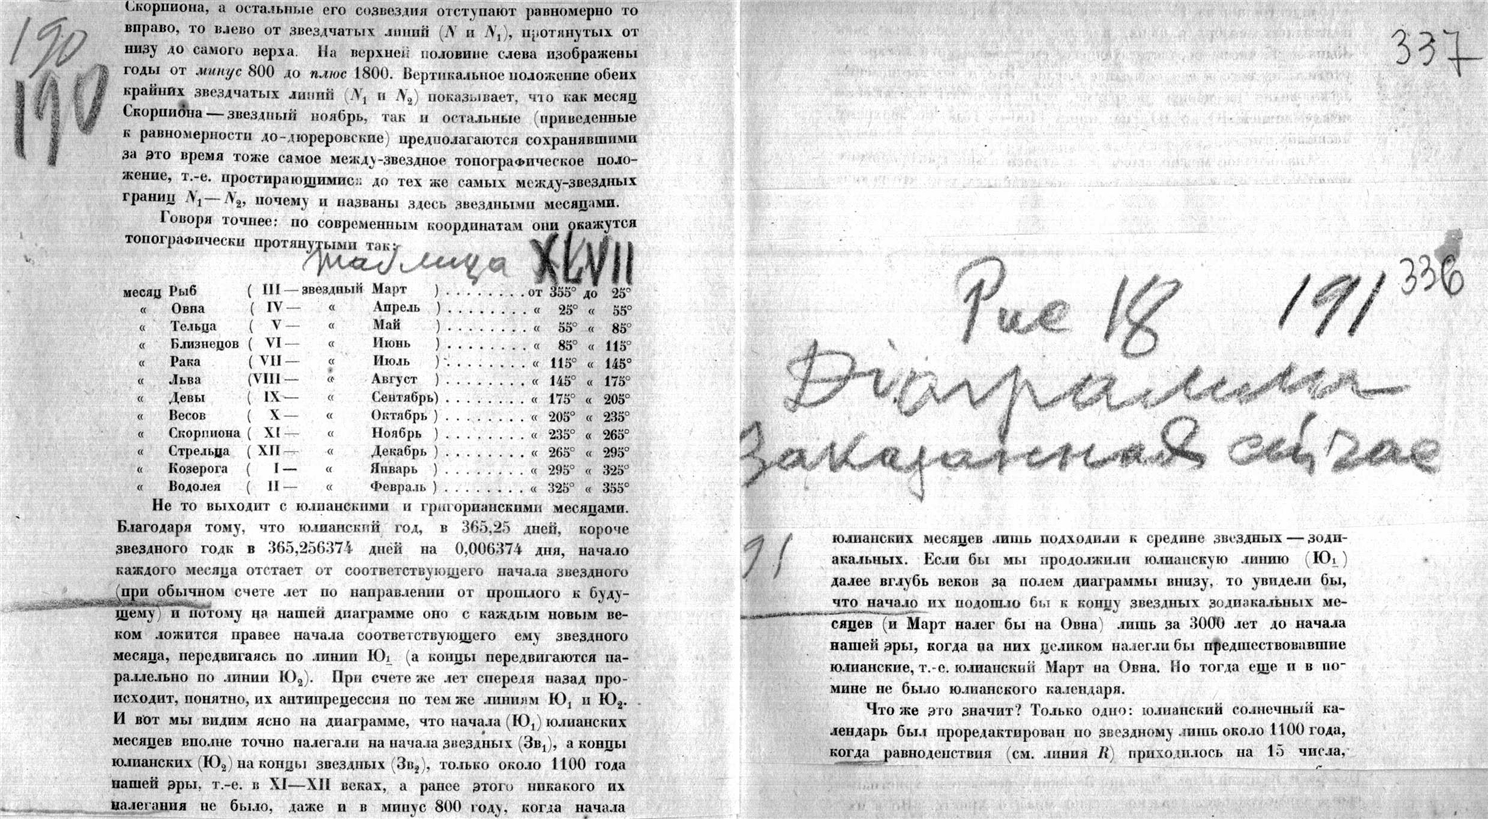 190
190
Скорпиона, а остальные его созвездия отступают равномерно то
вправо, то влево от звездчатых линий (N и N₁), протянутых от
низу до самого верха. На верхней половине слева изображены
годы от минус 800 до плюс 1800. Вертикальное положение обеих
крайних звездчатых линий (N₁ и N₂) показывает, что как месяц
Скорпиона — звездный ноябрь, так и остальные (приведенные
к равномерности до-дюреровские) предполагаются сохранявшими
за это время тоже самое между-звездное топографическое поло-
жение, т.-е. простирающимися до тех же самых между-звездных
границ N₁—N₂, почему и названы здесь звездными месяцами.
Говоря точнее: по современным координатам они окажутся
топографически протянутыми так:
таблица XLVII
месяц Рыб ( III — звездный Март ) . . . . . . . . от 355° до 25°
« Овна ( IV — « Апрель ) . . . . . . . . « 25° « 55°
« Тельца ( V — « Май ) . . . . . . . . « 55° « 85°
« Близнецов ( VI — « Июнь ) . . . . . . . . « 85° « 115°
« Рака ( VII — « Июль ) . . . . . . . . « 115° « 145°
« Льва (VIII — « Август ) . . . . . . . . « 145° « 175°
« Девы ( IX — « Сентябрь) . . . . . . . . « 175° « 205°
« Весов ( X — « Октябрь ) . . . . . . . . « 205° « 235°
« Скорпиона ( XI — « Ноябрь ) . . . . . . . . « 235° « 265°
« Стрельца ( XII — « Декабрь ) . . . . . . . . « 265° « 295°
« Козерога ( I — « Январь ) . . . . . . . . « 295° « 325°
« Водолея ( II — « Февраль ) . . . . . . . . « 325° « 355°
Не то выходит с юлианскими и григорианскими месяцами.
Благодаря тому, что юлианский год, в 365,25 дней, короче
звездного годк в 365,256374 дней на 0,006374 дня, начало
каждого месяца отстает от соответствующего начала звездного
(при обычном счете лет по направлении от прошлого к буду-
щему) и потому на нашей диаграмме оно с каждым новым ве-
ком ложится правее начала соответствующего ему звездного
месяца, передвигаясь по линии Ю₁ (а концы передвигаются па-
раллельно по линии Ю₂). При счете же лет спереди назад про-
исходит, понятно, их антипрецессия по тем же линиям Ю₁ и Ю₂.
И вот мы видим ясно на диаграмме, что начала (Ю₁) юлианских
месяцев вполне точно налегали на начала звездных (Зв₁), а концы
юлианских (Ю₂) на концы звездных (Зв₂), только около 1100 года
нашей эры, т.-е. в XI—XII веках, а ранее этого никакого их
налегания не было, даже и в минус 800 году, когда начала
337
336
Рис 18 191
Діаграмма
Заказанная сейчас
91
юлианских месяцев лишь подходили к средине звездных — зоди-
акальных. Если бы мы продолжили юлианскую линию (Ю₁)
далее вглубь веков за полем диаграммы внизу, то увидели бы,
что начало их подошло бы к концу звездных зодиакальных ме-
сяцев (и Март налег бы на Овна) лишь за 3000 лет до начала
нашей эры, когда на них целиком налегли бы предшествовавшие
юлианские, т.-е. юлианский Март на Овна. Но тогда еще и в по-
мине не было юлианского календаря.
Что же это значит? Только одно: юлианский солнечный ка-
лендарь был проредактирован по звездному лишь около 1100 года,
когда равноденствия (см. линия R) приходилось на 15 числа,